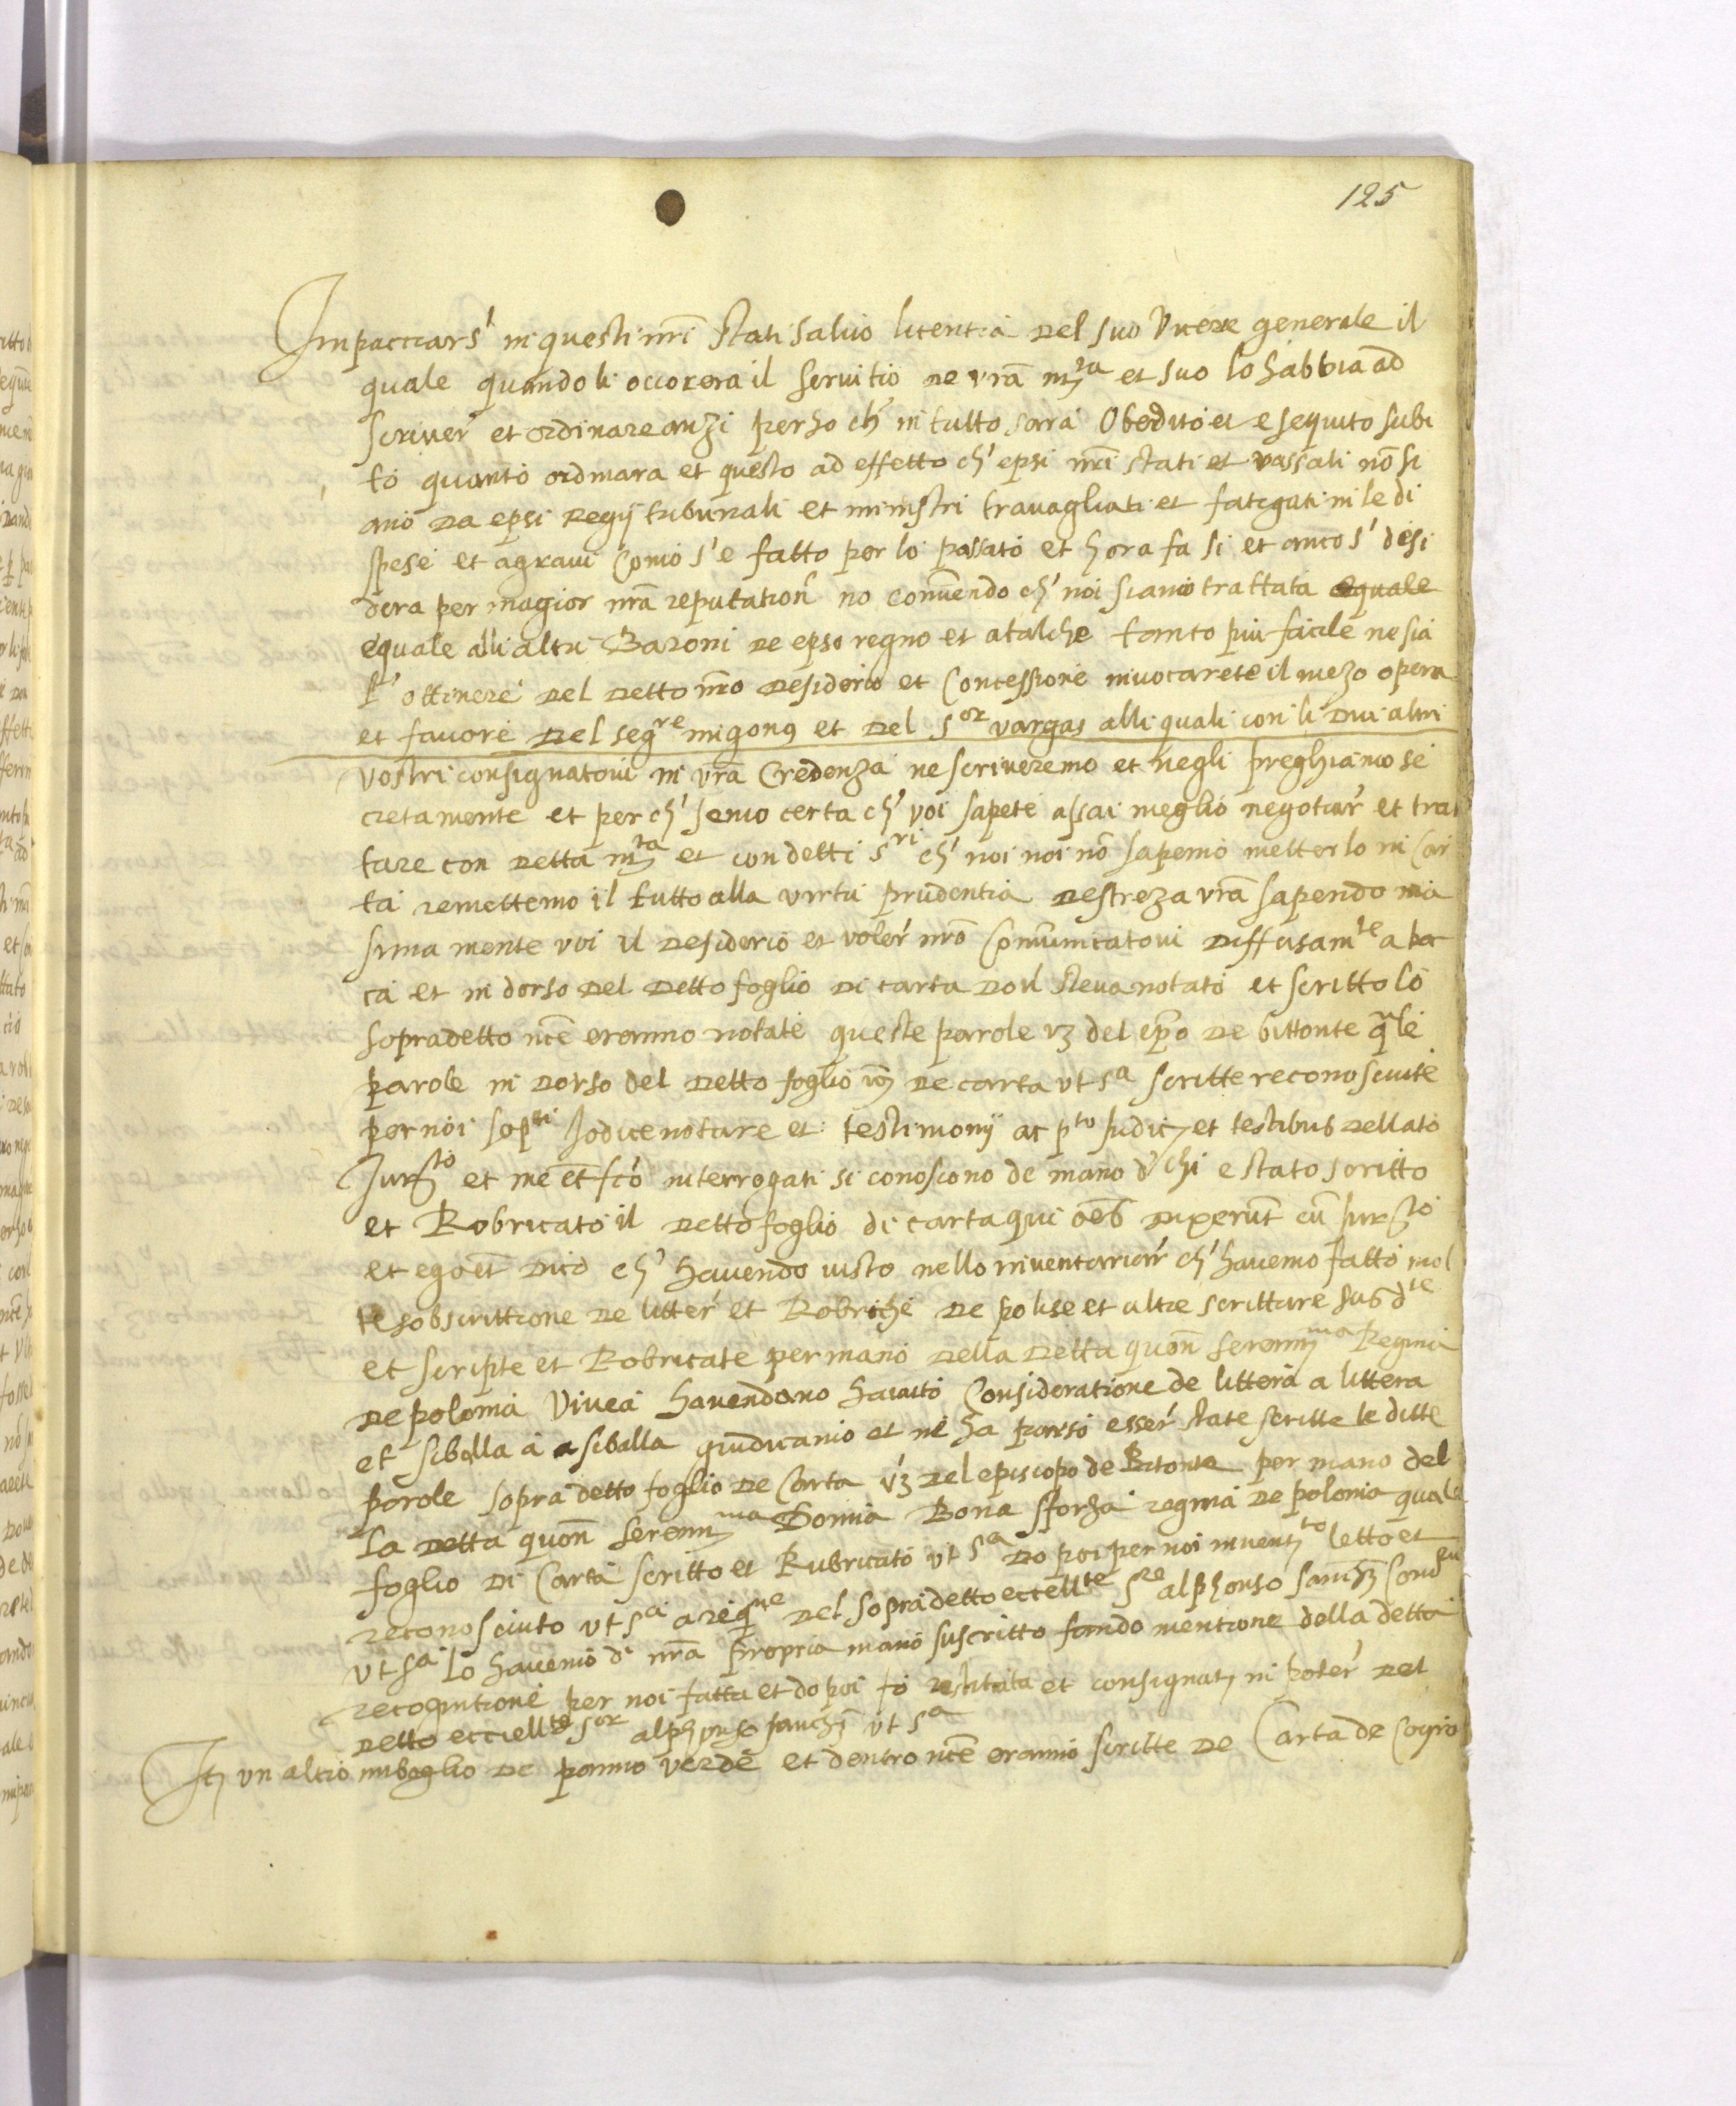 125
Impacciars' in questi nri stati salvo licentia del suo Vicere generale il
quale quando li occorera il servitio de vra mta et suo lo habbia ad
scriver et ordinare anzi perho ch' in tutto sarà obedito et esequito subi
to quanto ordinara et questo ad effetto ch' epsi nri stati et vassali nō si
ano da epsi Regij tribunali et ministri travagliati et fatigati in le di
spese et agravii como s'e fatto per lo passato et hora fa si et anco s' desi
dera per magior nra reputation no convenendo ch' noi siamo trattata equale
equale alli altri Baroni de epso regno et a talche tanto piu facile ne sia
l' ottinere del detto nro desiderio et concessione invocarete il mezo opera
et favore del segre migong et del sor vargas alli quali con li dui altri
vostri consignatovi in vra credenza ne scriveremo et negli preghiamo se
cretamente et per ch' semo certa ch' voi sapete assai meglio negotiar et trat
tare con detta mta et con detti sri ch' noi noi nō sapemo metterlo in car
ta remettemo il tutto alla virtu prudentia destreza vra sapendo ma
sima mente voi il desiderio et voler nro comunicatovi diffusamte a boc
ca et in dorso del detto foglio di carta dovl steva notato et scritto lo
sopradetto nce eranno notate queste parole vz del epō de bittonte qle
parole in dorso del detto foglio de carta ut sa scritte reconosciute
per noi sopti Jodice notare et testimonij ac pto Judice et testibus dellato
Jurto et me et interrogati si conoscono de mano d' chi e stato scritto
et Robricato il detto foglio di carta qui oēs dixerūt cū Jurto
et ego et dico ch' havendo visto nello inventariar ch' havemo fatto mol
te sobscrittione de litter et Robriche de polise et altre scritture sub dte
et scripte et Robricate per mano della detta quon serenma Regina
de polonia Vivea havendono havuto consideratione de littera a littera
et siballa a a siballa giudicamo et ne ha parso esser state scritte le ditte
parole sopra detto foglio de carta vz del episcopo de Bitonto per mano del
la detta quon serenma Donna Bona sforza regina de polonia quale
foglio di carta scritto et Rubricato ut sa do poi per noi inventto letto et
reconosciuto ut sa a reqte del sopradetto eccellte sre alphonso sanchz
ut sa lo havemo d' nra propria mano suscritto fando mentione della detta
recognitione per noi fatta et do poi fo restituta et consignat in poter del
detto eccellte sor alphonso sanchz ut sa
It un altro nuboglio de panno verde et dentro nce eranno scritte de Carta de Coyro